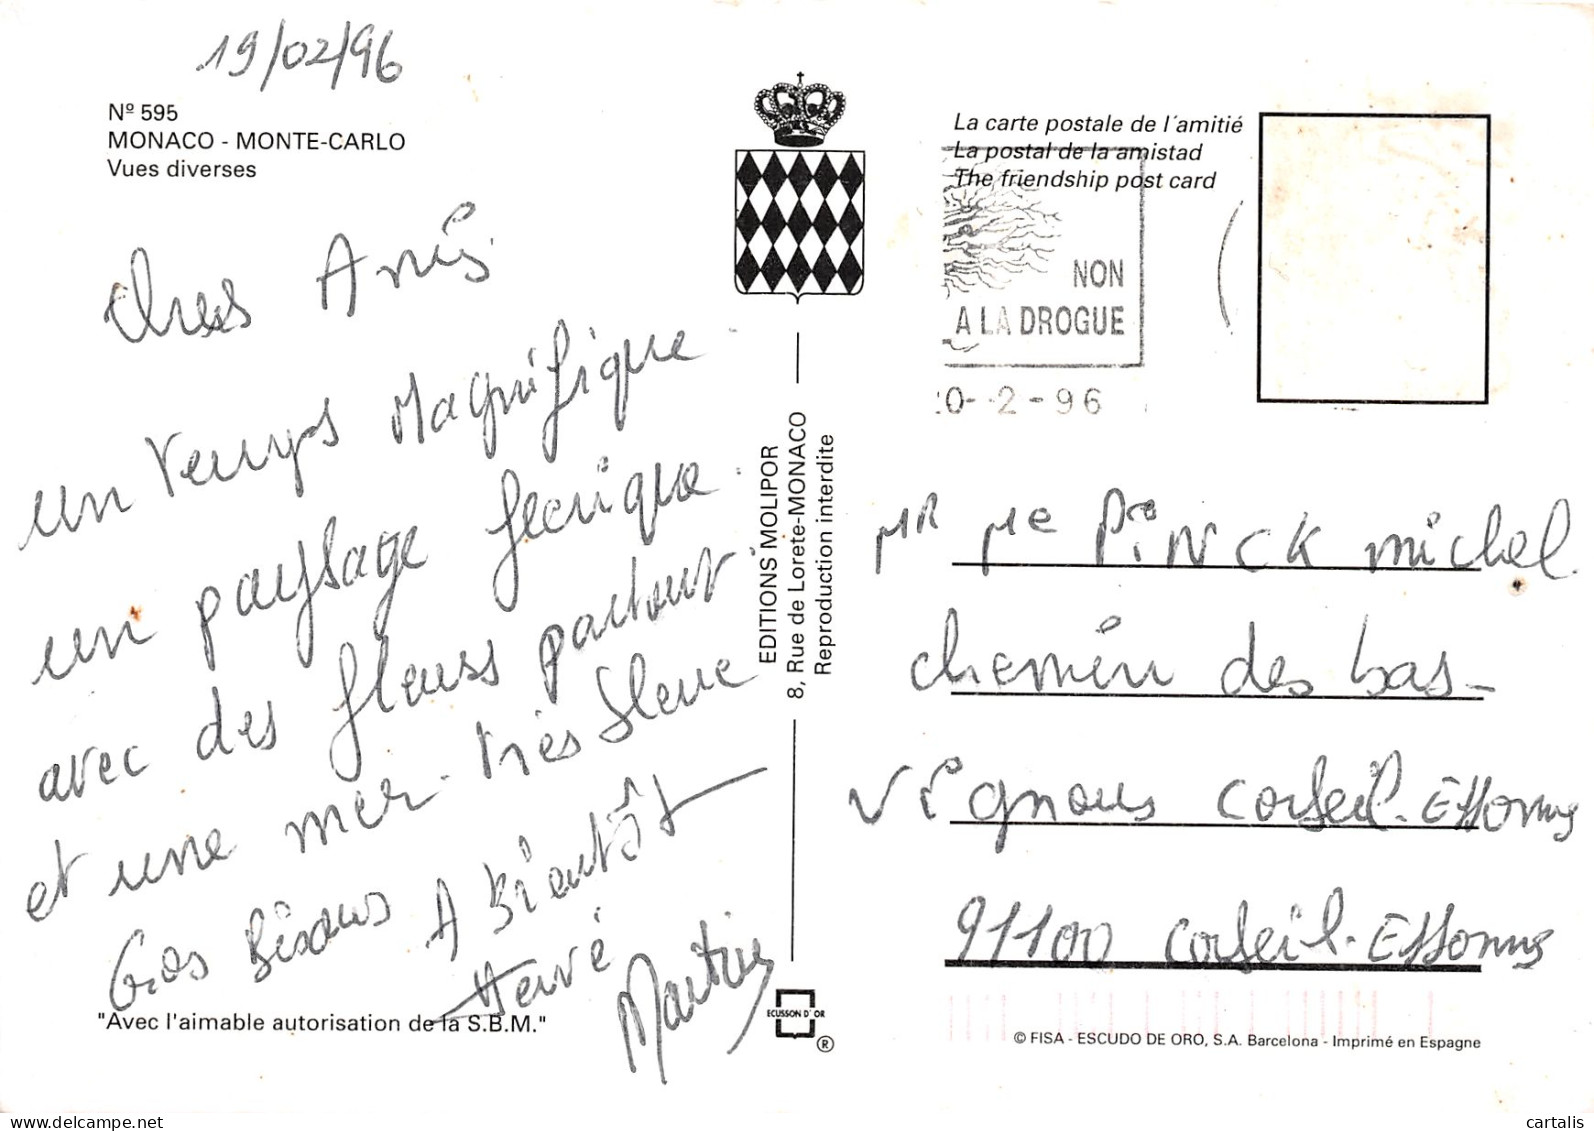 19/02/96
Nº 595
MONACO - MONTE-CARLO
Vues diverses
Chers Amis
un temps Magnifique
un paysage feerique
avec des fleurs partout
et une mer très bleue
Gros Bisous A Bientôt
Hervé
Martine
"Avec l'aimable autorisation de la S.B.M."
EDITIONS MOLIPOR
8, Rue de Lorete-MONACO
Reproduction interdite
ECUSSON D'OR
®
La carte postale de l'amitié
La postal de la amistad
The friendship post card
NON
A LA DROGUE
20-2-96
MR Me PiNCK michel
chemin des bas-
vignous corbeil-Essonnes
91100 corbeil-Essonnes
© FISA - ESCUDO DE ORO, S.A. Barcelona - Imprimé en Espagne
cartalis